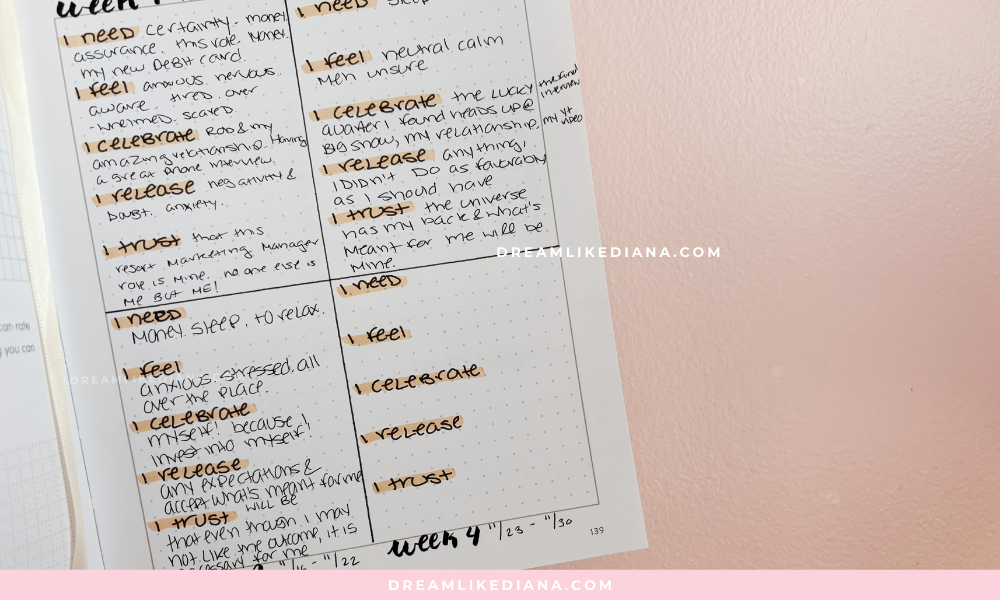 week
I need certainty. money.
assurance. this role. Money.
my new Debit card.
I feel anxious. nervous.
aware. tired. over
-whelmed. scared.
I celebrate Roo & my
amazing relationship. Having
a great phone interview.
I release negativity &
Doubt. anxiety.
I trust that this
resort Marketing Manager
role is mine. no one else is
me BUT ME!
I need sleep
I feel neutral calm
Meh unsure
I celebrate the LUCKY
quarter I found heads up @
Big Show, my relationship,
the 2nd
interview
my yt
video
I release anything,
I DIDN'T DO as favorably
as I should have
I trust the universe
has my back & what's
Meant for me will be
Mine.
I need
Money. Sleep. to relax.
I feel
anxious. stressed, all
over the place.
I celebrate
myself! because I
invest into myself!
I release
any expectations &
accept what's meant for me
will be
I trust
that even though I may
not like the outcome, it is
necessary for me
11/22
I need
I feel
I celebrate
I release
I trust
week 4 11/23 - 11/30
139
can rate
you can
DREAMLIKEDIANA.COM
DREAMLIKEDIANA.COM
DREAMLIKEDIANA.COM